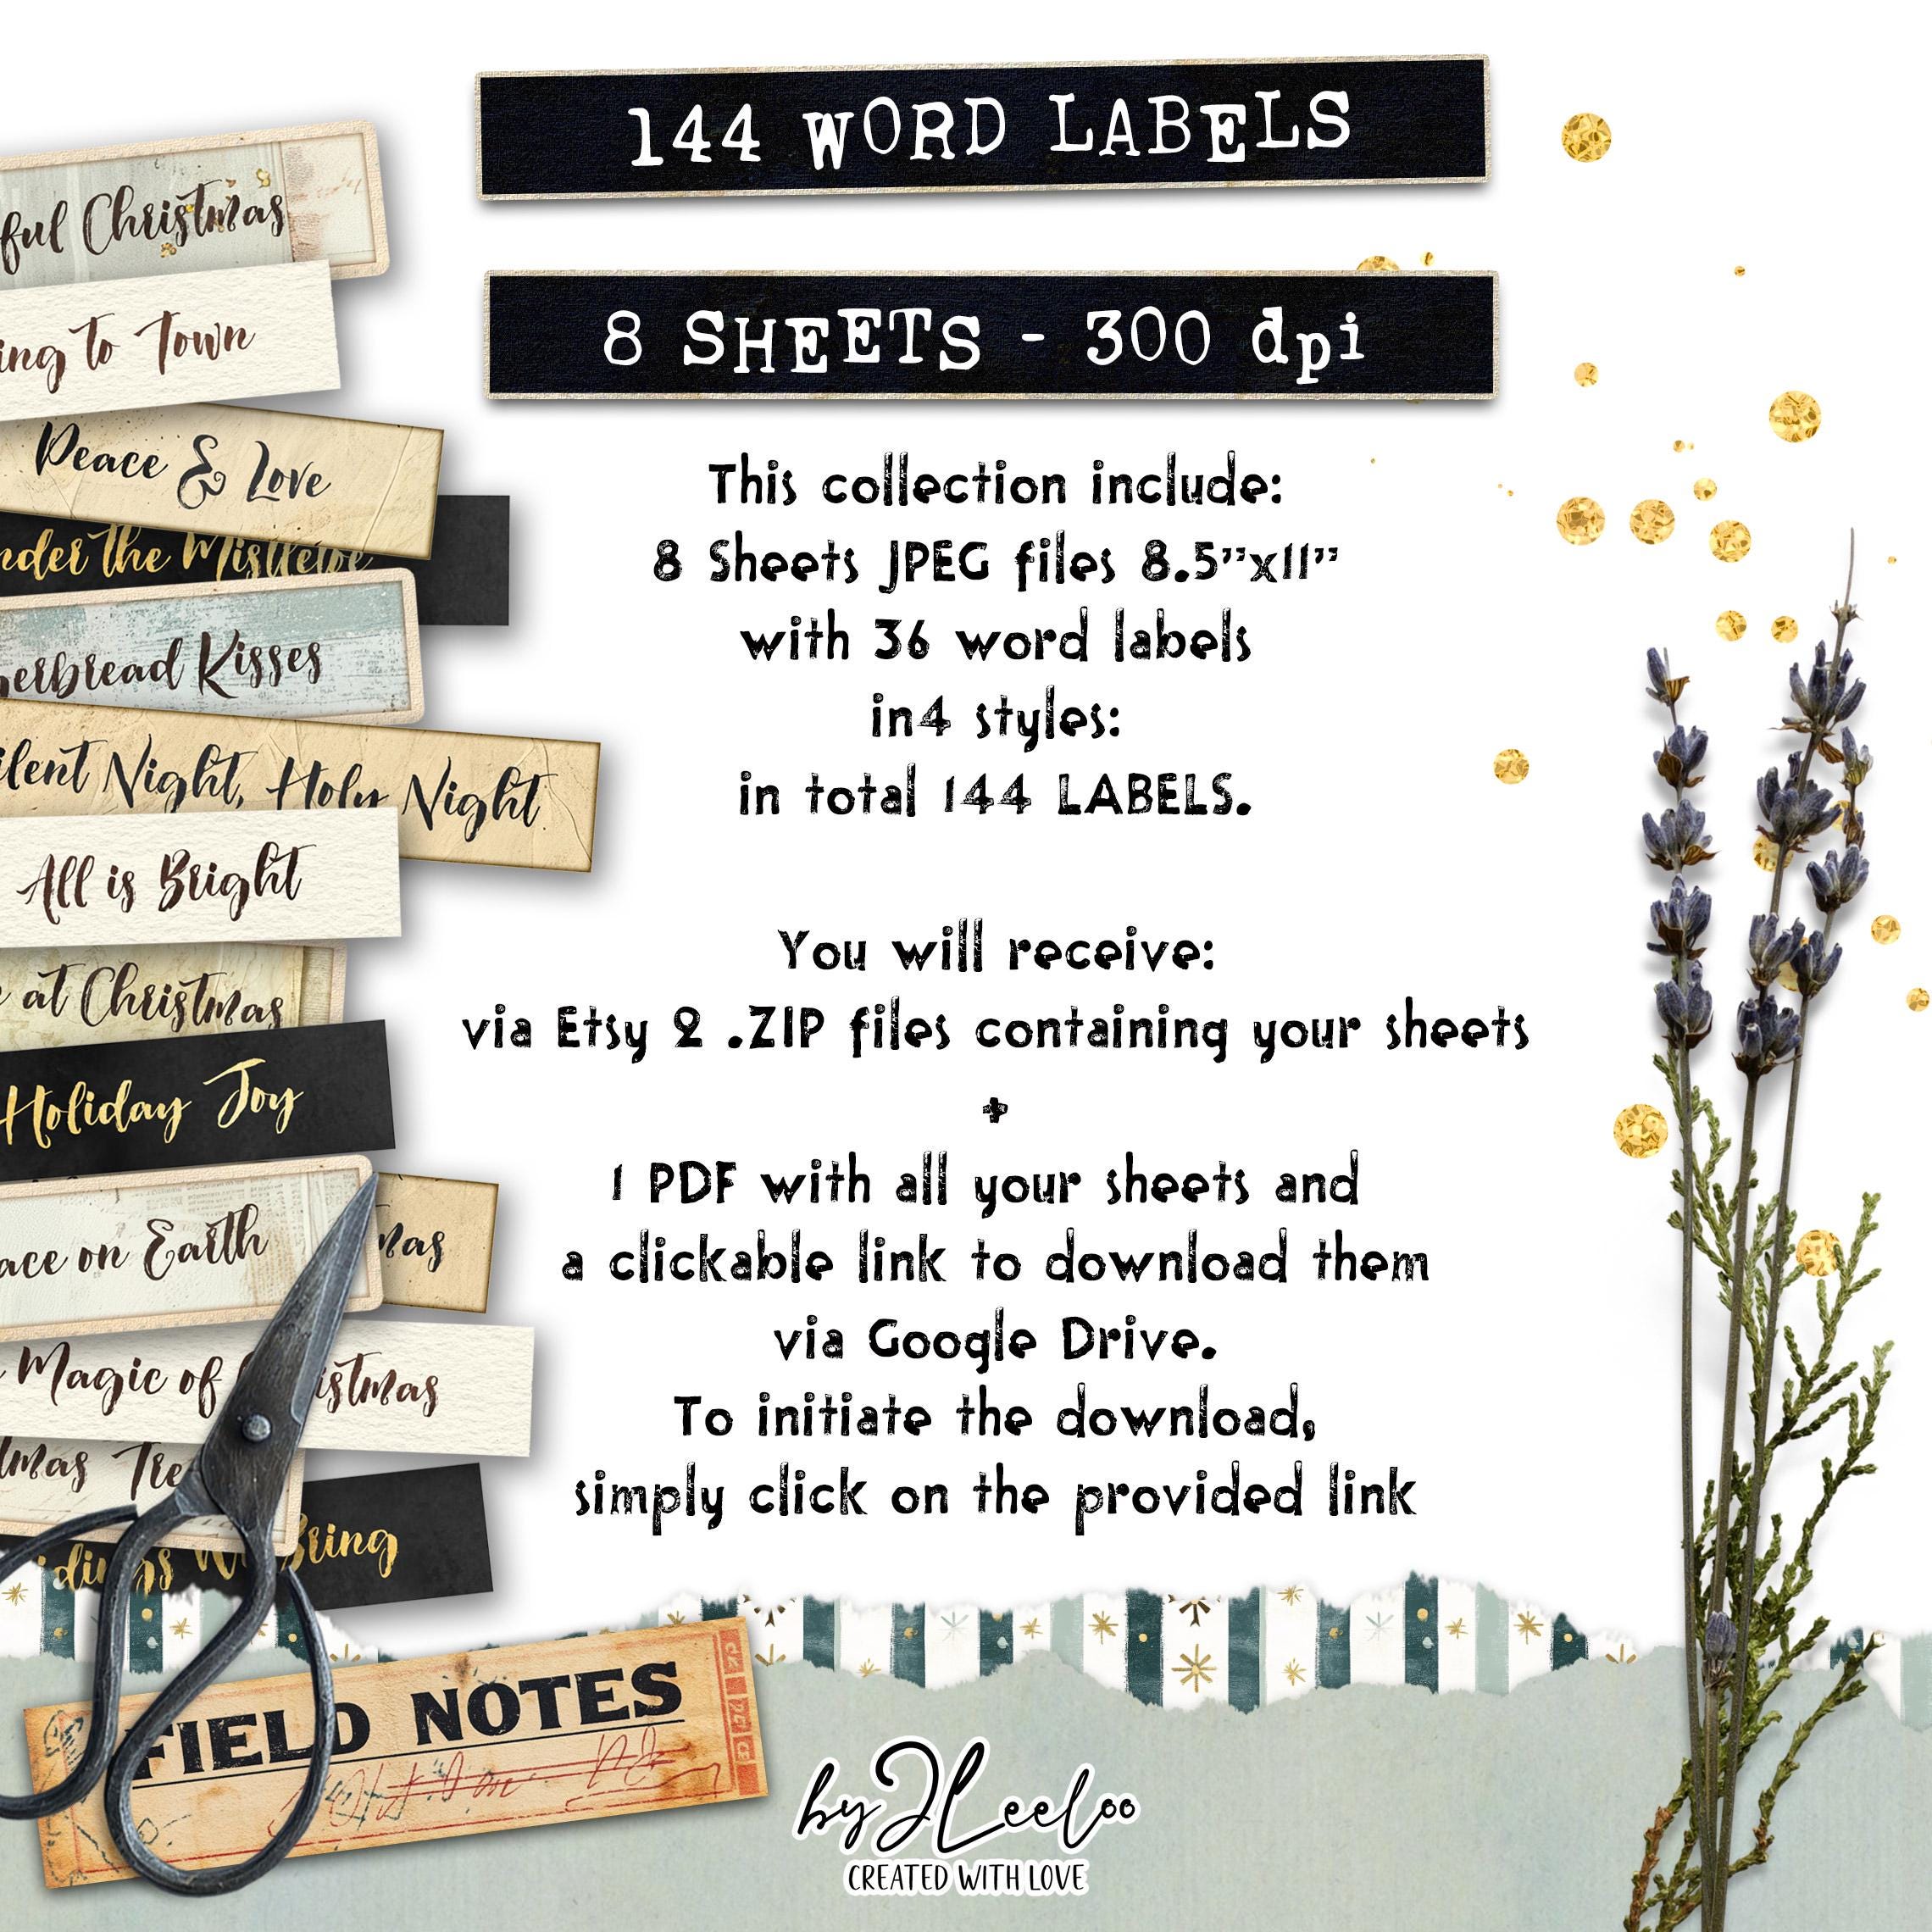 144 WORD LABELS
8 SHEETS - 300 dpi
This collection include:
8 Sheets JPEG files 8.5”x11”
with 36 word labels
in4 styles:
in total 144 LABELS.
You will receive:
via Etsy 2 .ZIP files containing your sheets
+
1 PDF with all your sheets and
a clickable link to download them
via Google Drive.
To initiate the download,
simply click on the provided link
ful Christmas
ing to Town
Peace & Love
nder the Mistletoe
erbread Kisses
ilent Night, Holy Night
All is Bright
at Christmas
Holiday Joy
ace on Earth
mas
Magic of istmas
tmas Tre
dings We Bring
FIELD NOTES
byJLeeloo
CREATED WITH LOVE